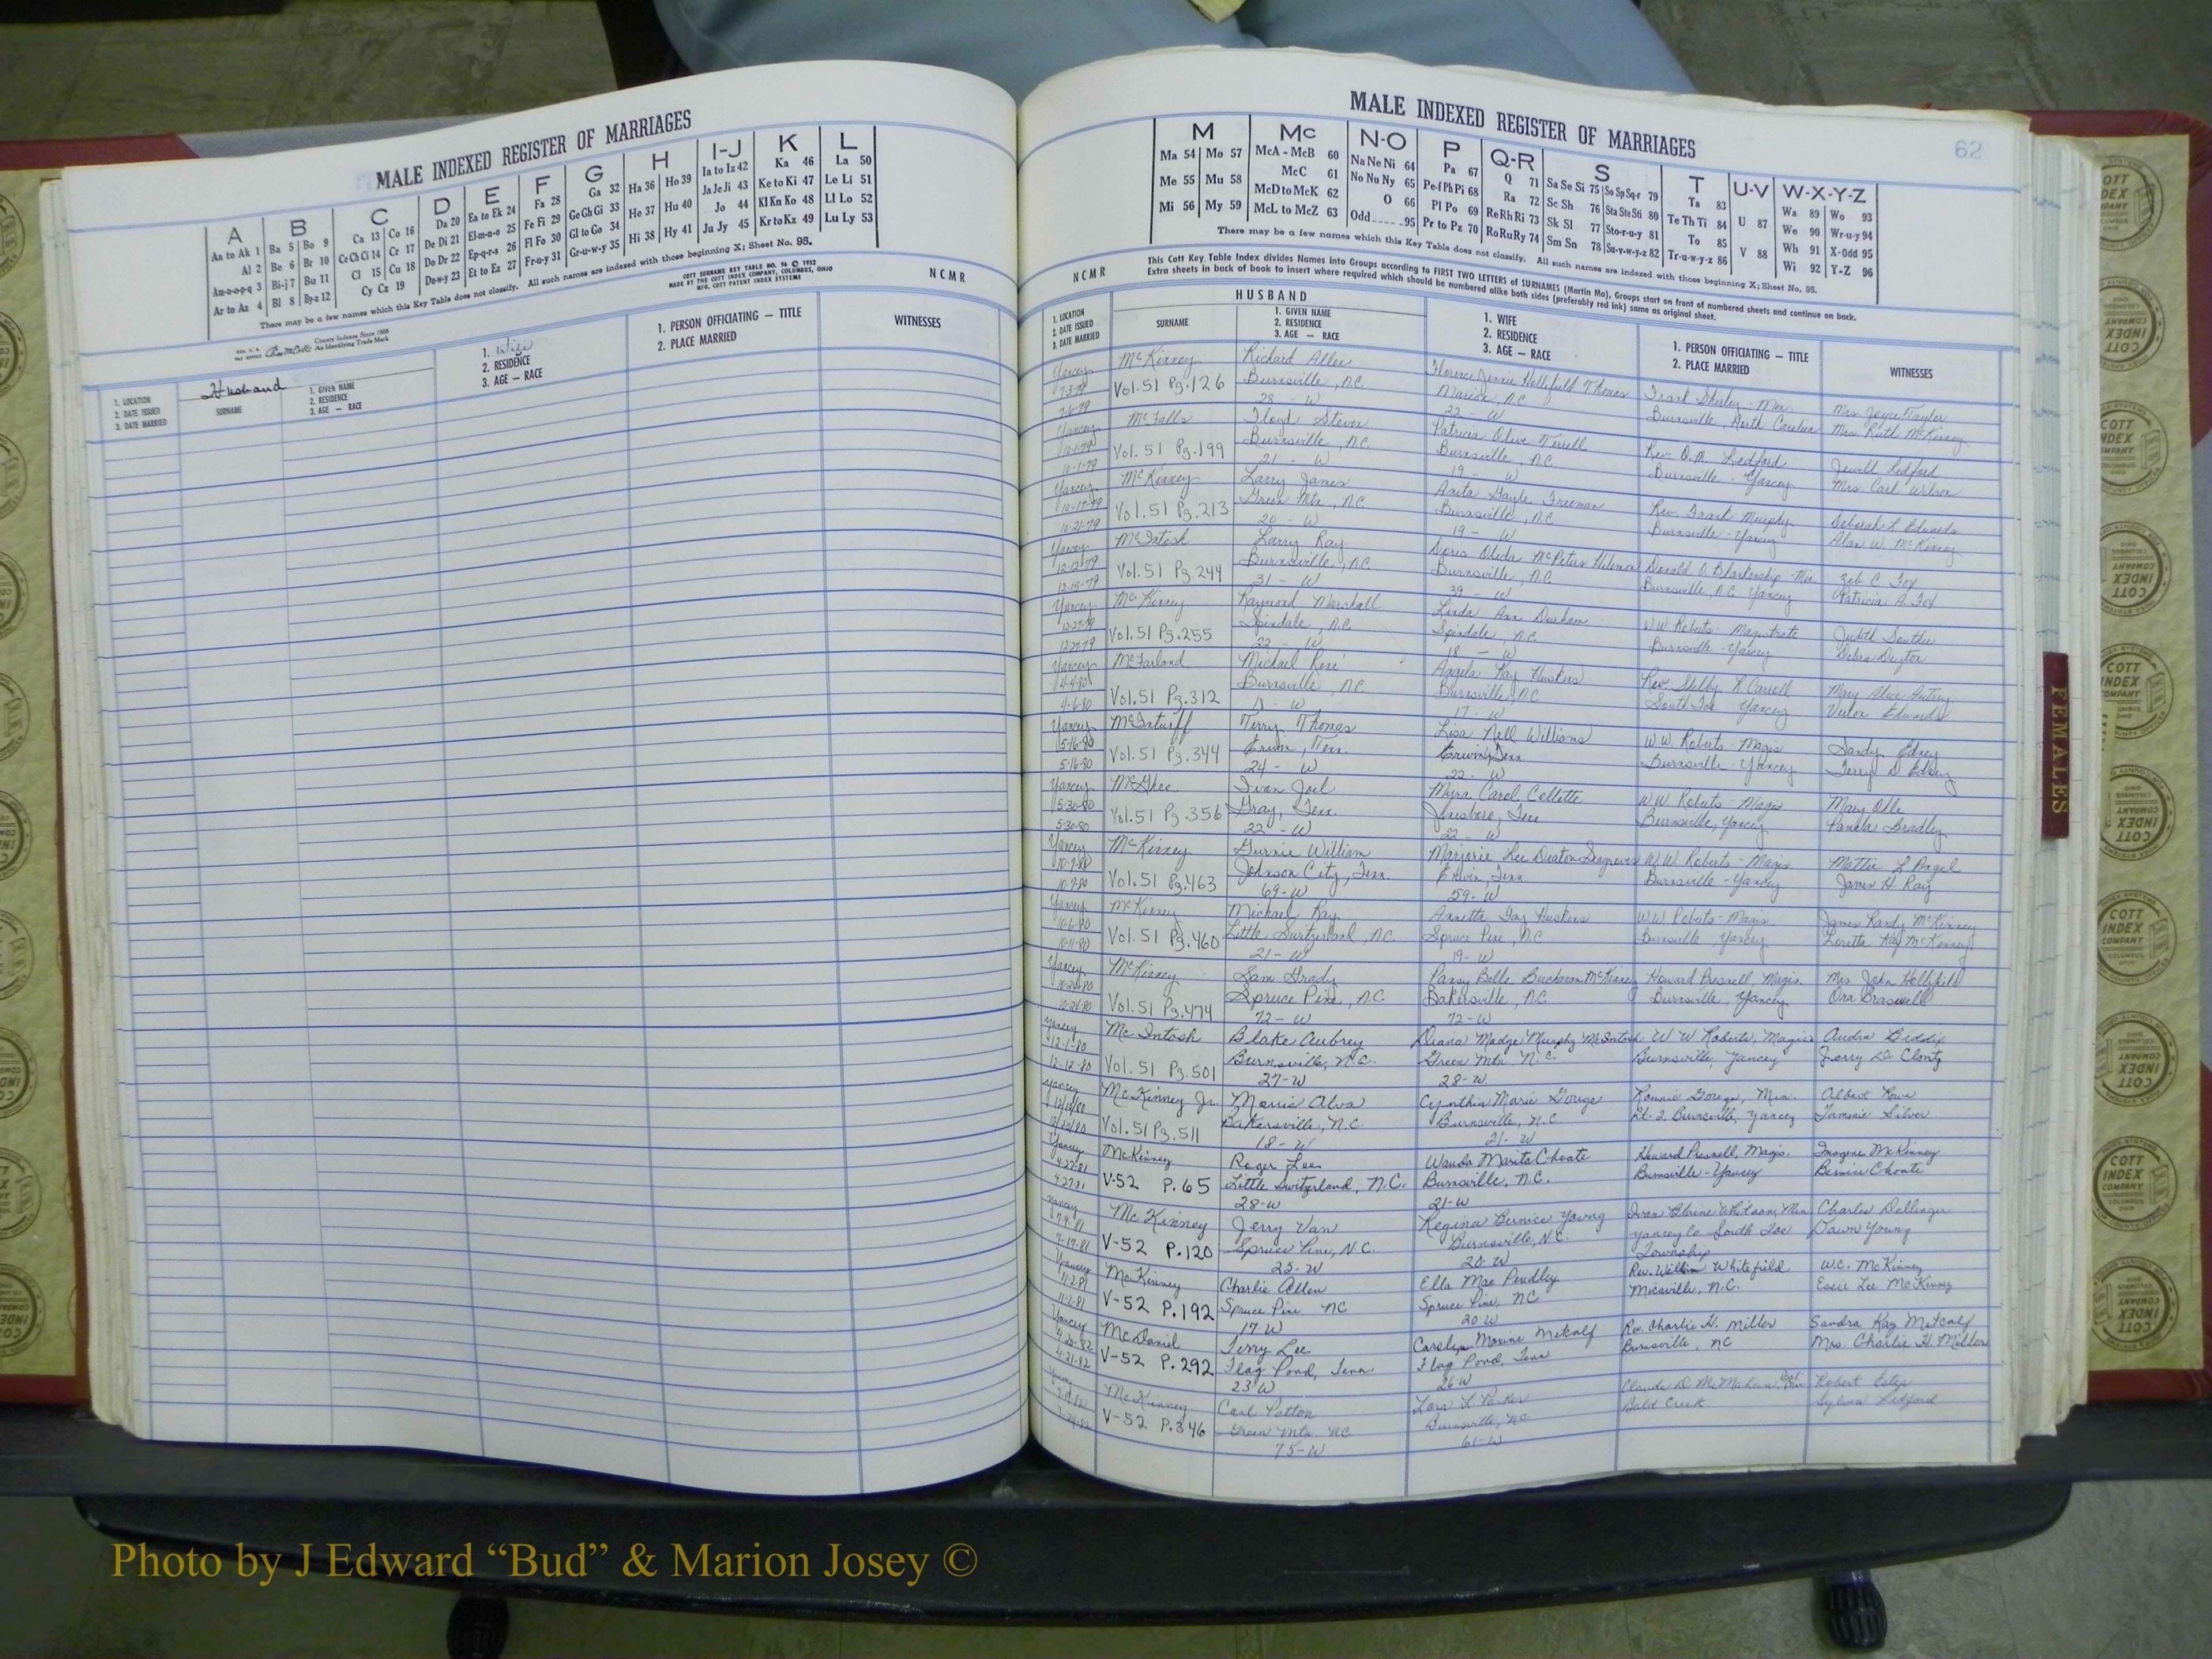 MALE INDEXED REGISTER OF MARRIAGES
A B C D E F G H I-J K L
Aa to Ak 1 Ba 5 Bo 9 Ca 13 Co 16 Da 20 Ea to Ek 24 Fa 28 Ga 32 Ha 36 Ho 39 Ia to Iz 42 Ka 46 La 50
Al 2 Be 6 Br 10 Ce Ch Ci 14 Cr 17 De Di 21 El-m-n-o 25 Fe Fi 29 Ge Gh Gi 33 He 37 Hu 40 Ja Je Ji 43 Ke to Ki 47 Le Li 51
Am-n-o-p-q 3 Bi-j 7 Bu 11 Cl 15 Cu 18 Do Dr 22 Ep-q-r-s 26 Fl Fo 30 Gl to Go 34 Hi 38 Hy 41 Jo 44 Kl Kn Ko 48 Ll Lo 52
Ar to Az 4 Bl 8 By-z 12 Cy Cz 19 Du-w-y 23 Et to Ez 27 Fr-u-y 31 Gr-u-w-y 35 Ju Jy 45 Kr to Kz 49 Lu Ly 53
There may be a few names which this Key Table does not classify. All such names are indexed with those beginning X; Sheet No. 95.
County Indexes Since 1888
An Identifying Trade Mark
COTT SURNAME KEY TABLE NO. 96 © 1952
MADE BY THE COTT INDEX COMPANY, COLUMBUS, OHIO
MFG. COTT PATENT INDEX SYSTEMS
NCMR
1. LOCATION
2. DATE ISSUED
3. DATE MARRIED
Husband
SURNAME
1. GIVEN NAME
2. RESIDENCE
3. AGE — RACE
1. Wife
2. RESIDENCE
3. AGE — RACE
1. PERSON OFFICIATING — TITLE
2. PLACE MARRIED
WITNESSES
MALE INDEXED REGISTER OF MARRIAGES
62
M Mc N-O P Q-R S T U-V W-X-Y-Z
Ma 54 Mo 57 McA - McB 60 Na Ne Ni 64 Pa 67 Q 71 Sa Se Si 75 So Sp Sq-r 79 Ta 83 Wa 89 Wo 93
Me 55 Mu 58 McC 61 No Nu Ny 65 Pe-f Ph Pi 68 Ra 72 Sc Sh 76 Sta Ste Sti 80 Te Th Ti 84 U 87 We 90 Wr-u-y 94
Mi 56 My 59 McD to McK 62 O 66 Pl Po 69 Re Rh Ri 73 Sk Sl 77 Sto-r-u-y 81 To 85 V 88 Wh 91 X-Odd 95
McL to McZ 63 Odd 95 Pr to Pz 70 Ro Ru Ry 74 Sm Sn 78 Su-v-w-y-z 82 Tr-u-w-y-z 86 Wi 92 Y-Z 96
There may be a few names which this Key Table does not classify. All such names are indexed with those beginning X; Sheet No. 95.
NCMR
This Cott Key Table Index divides Names into Groups according to FIRST TWO LETTERS of SURNAMES (Martin Ma), Groups start on front of numbered sheets and continue on back.
Extra sheets in back of book to insert where required which should be numbered alike both sides (preferably red ink) same as original sheet.
HUSBAND
1. LOCATION
2. DATE ISSUED
3. DATE MARRIED
SURNAME
1. GIVEN NAME
2. RESIDENCE
3. AGE — RACE
1. WIFE
2. RESIDENCE
3. AGE — RACE
1. PERSON OFFICIATING — TITLE
2. PLACE MARRIED
WITNESSES
Yancey McKinney Richard Allen Florence Jennie Hollifield Thomas Frank Shirley - Min. Mrs Joyce Taylor
Vol. 51 Pg. 126 Burnsville, N.C. Burnsville, North Carolina Mrs. Ruth McKinney
28 - W 22 - W
Yancey McFalls Floyd Steven Patricia Olive Rev. O.M. Ledford Jewell Ledford
10-1-79 Vol. 51 Pg. 199 Burnsville, N.C. Burnsville, N.C. Burnsville - Yancey Mrs. Carl Wilson
21 - W 19 - W
Yancey McKinney Larry James Anita Gayle Freeman Rev. Frank Murphy Deborah L Edwards
10-21-79 Vol. 51 Pg. 213 Green Mtn., N.C. Burnsville, N.C. Burnsville - Yancey Alan W. McKinney
20 - W 19 - W
Yancey McIntosh Larry Ray Doris Oleda McPeters Donald D Blankenship - Min. Zeb C Fox
12-15-79 Vol. 51 Pg. 244 Burnsville, N.C. Burnsville, N.C. Burnsville N.C. Yancey Patricia A. Fox
31 - W 39 - W
Yancey McKinney Raymond Marshall Linda Ann Dunham W.W. Roberts - Magistrate Judith
Vol. 51 Pg. 255 Spindale, N.C. Spindale, N.C. Burnsville - Yancey Debra
22 - W 18 - W
Yancey McFarland Michael René Angela Kay Huskins Rev. Shelby R. Carroll Mary Alice Autrey
4-4-80
4-6-80 Vol. 51 Pg. 312 Burnsville, N.C. Burnsville, N.C. South Toe Yancey Edwards
W 17 - W
Yancey Terry Thomas Lisa Nell Williams W.W. Roberts - Magis Sandy Edney
5-16-80
5-16-80 Vol. 51 Pg. 344 Erwin, Tenn. Erwin, Tenn. Burnsville - Yancey Terry D Edney
24 - W 22 - W
Yancey McGhee Ivan Joel Myra Carol Collette W.W. Roberts - Magis Mary
5-30-80
5-30-80 Vol. 51 Pg. 356 Gray, Tenn. Jonesboro, Tenn. Burnsville, Yancey Pamela Bradley
22 - W 22 - W
Yancey McKinney Gurnie William Marjorie Lee Deaton W.W. Roberts - Magis Mattie L Angel
10-7-80 Vol. 51 Pg. 463 Johnson City, Tenn. Erwin, Tenn. Burnsville - Yancey James H. Ray
69 - W 59 - W
Yancey McKinney Michael Ray Annette Huskins W.W. Roberts - Magis James Randy McKinney
Vol. 51 Pg. 460 Little Switzerland, N.C. Spruce Pine, N.C. Burnsville Yancey Loretta Kay McKinney
21 - W 19 - W
Yancey McKinney Sam Grady Pansy Belle Buchanan McKinney Howard Presnell Magis. Mrs John Hollifield
Vol. 51 Pg. 474 Spruce Pine, N.C. Bakersville, N.C. Burnsville, Yancey Ora Braswell
72 - W 72 - W
Yancey McIntosh Blake Aubrey Diana Madge Murphy McIntosh W W Roberts, Magis
12-1-80
12-12-80 Vol. 51 Pg. 501 Burnsville, N.C. Green Mtn. N.C. Burnsville, Yancey Jerry
27 - W 28 - W
Yancey McKinney Jr. Morris Alva Cynthia Marie Gouge Ronnie Gouge, Min. Albert Rowe
Vol. 51 Pg. 511 Bakersville, N.C. Burnsville, N.C. Rt. 2, Burnsville, Yancey Tammie Silver
18 - W 21 - W
Yancey McKinney Roger Lee Wanda Marita Choate Howard Presnell, Magis. Imogene McKinney
4-27-81
4-27-81 V-52 P. 65 Little Switzerland, N.C. Burnsville, N.C. Burnsville - Yancey Bernice Choate
28-W 21-W
Yancey McKinney Jerry Van Regina Bernice Young Ivan Blaine Whitson, Min Charles Dellinger
7-17-81 V-52 P. 120 Spruce Pine, N.C. Burnsville, N.C. Yancey Co South Toe Dawn Young
25-W 20-W Township
Yancey McKinney Charlie Allen Ella Mae Pendley Rev. William Whitefield W.C. McKinney
11-2-81
11-2-81 V-52 P. 192 Spruce Pine NC Spruce Pine, NC Micaville, N.C. Essie Lee McKinney
17 W 20 W
Yancey McDaniel Terry Lee Carolyn Maxine Metcalf Rev. Charlie H. Miller Sandra Kay Metcalf
4-20-82
4-21-82 V-52 P. 292 Flag Pond, Tenn. Flag Pond, Tenn Burnsville, NC Mrs. Charlie H. Miller
23 W 26 W
McKinney Carl Patton Lora L Parker Claude D McMahan Robert Estep
V-52 P. 346 Green Mtn. NC Burnsville, NC Bald Creek Sylvia Ledford
75-W 61-W
FEMALES
COTT
INDEX
COMPANY
Photo by J Edward “Bud” & Marion Josey ©